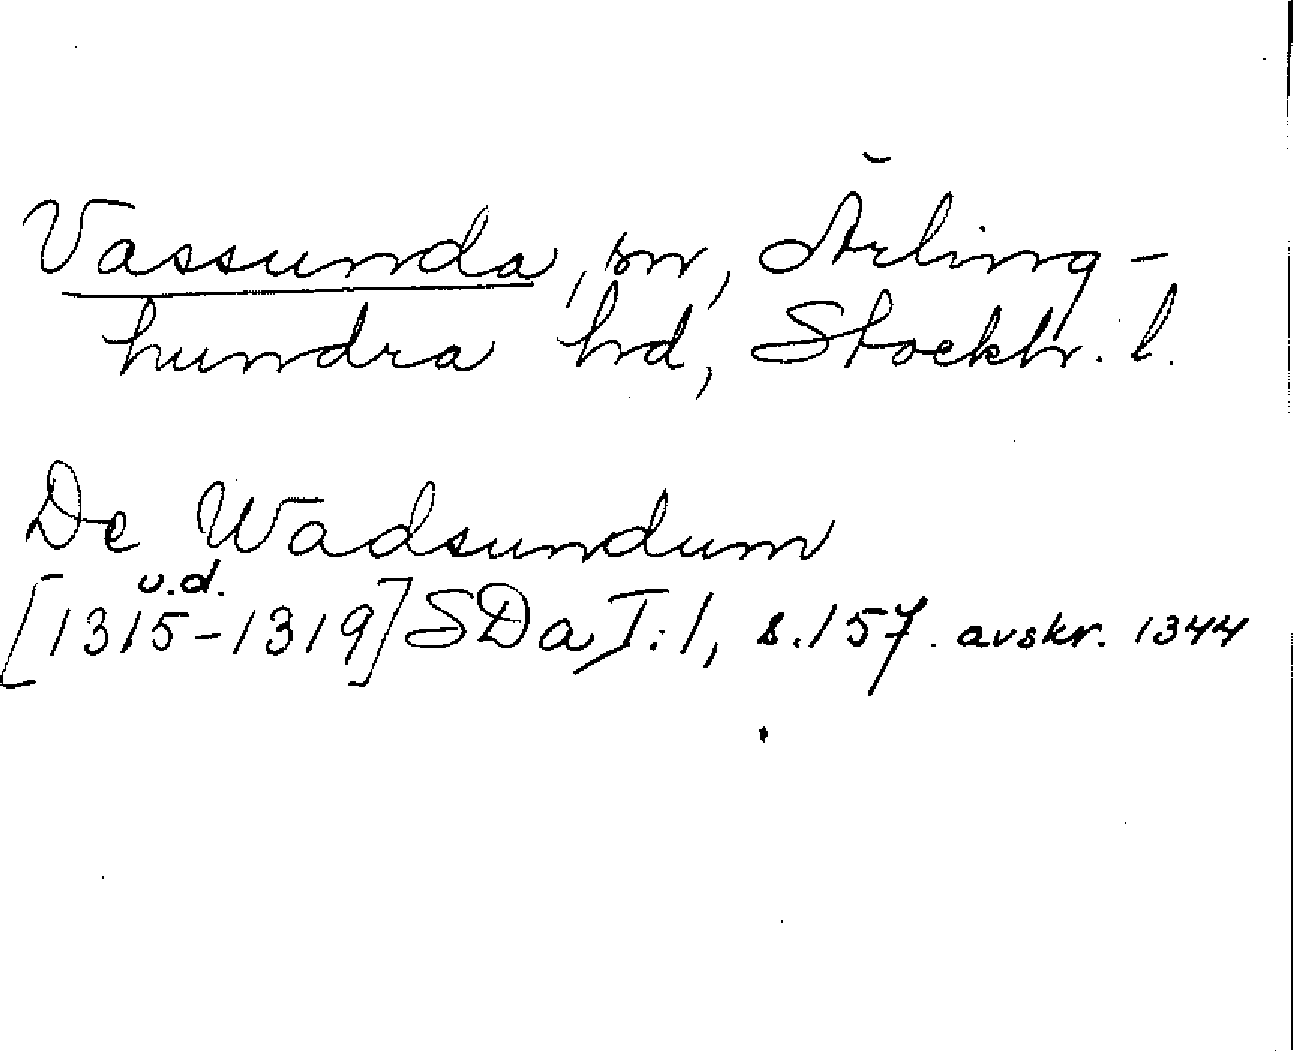 Vassunda, sn, Ärling-
hundra hd, Stockh. l.
De Wadsundum
u.d.
[1315-1319] SDa I:1, s.157. avskr. 1344